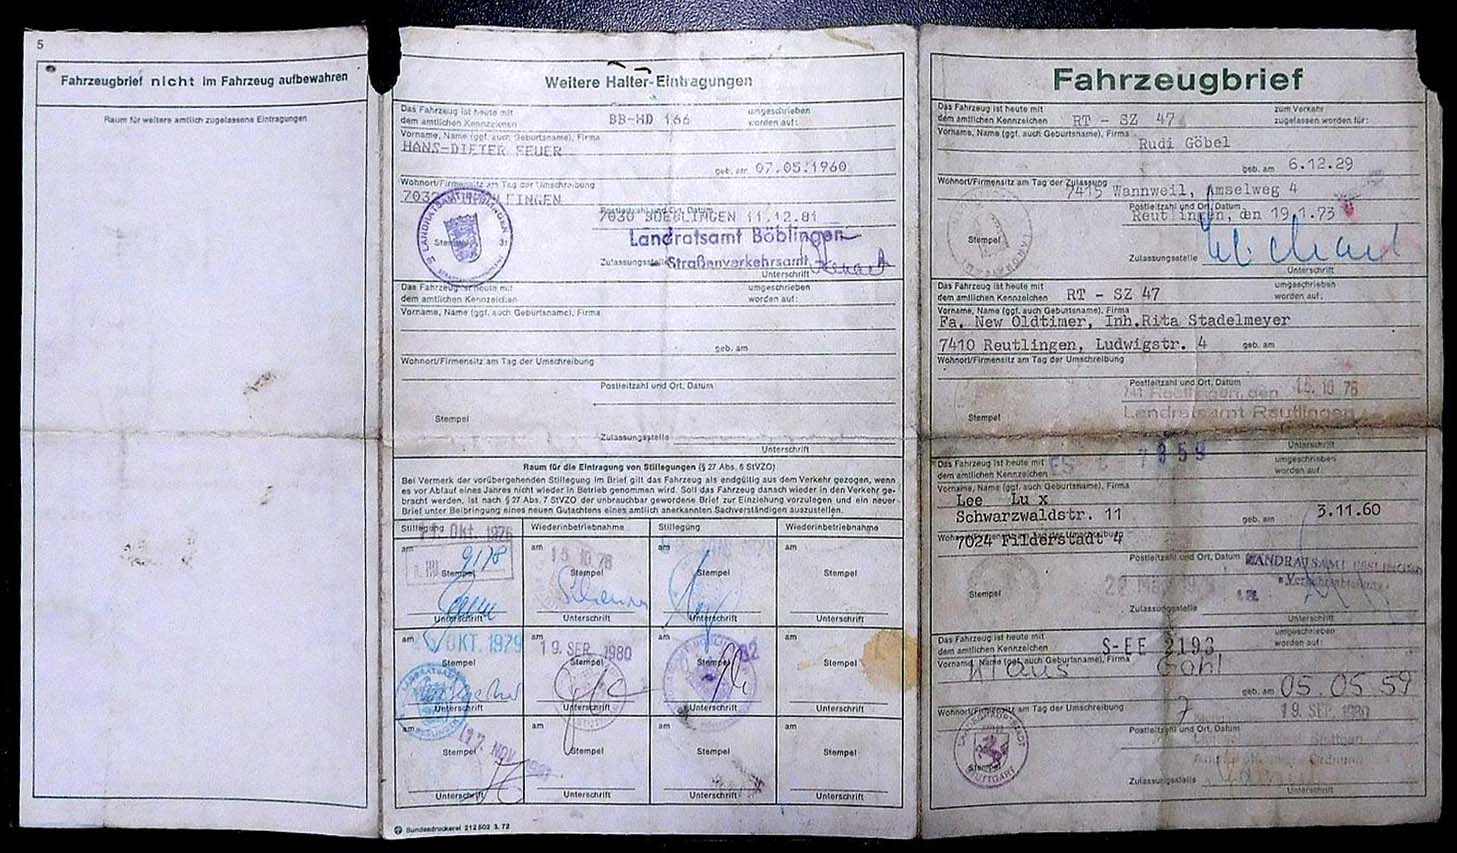 5
Fahrzeugbrief nicht im Fahrzeug aufbewahren
Raum für weitere amtlich zugelassene Eintragungen
Weitere Halter-Eintragungen
Das Fahrzeug ist heute mit
dem amtlichen Kennzeichen
BB-HD 166
umgeschrieben
worden auf:
Vorname, Name (ggf. auch Geburtsname), Firma
HANS-DIETER FEUER
geb. am 07.05.1960
Wohnort/Firmensitz am Tag der Umschreibung
Postleitzahl und Ort, Datum
7030 BOEBLINGEN 11.12.81
Landratsamt Böblingen
Straßenverkehrsamt
Stempel
Zulassungsstelle
Unterschrift
Das Fahrzeug ist heute mit
dem amtlichen Kennzeichen
umgeschrieben
worden auf:
Vorname, Name (ggf. auch Geburtsname), Firma
geb. am
Wohnort/Firmensitz am Tag der Umschreibung
Postleitzahl und Ort, Datum
Stempel
Zulassungsstelle
Unterschrift
Raum für die Eintragung von Stillegungen (§ 27 Abs. 6 StVZO)
Bei Vermerk der vorübergehenden Stillegung im Brief gilt das Fahrzeug als endgültig aus dem Verkehr gezogen, wenn
es vor Ablauf eines Jahres nicht wieder in Betrieb genommen wird. Soll das Fahrzeug danach wieder in den Verkehr ge-
bracht werden, ist nach § 27 Abs. 7 StVZO der unbrauchbar gewordene Brief zur Einziehung vorzulegen und ein neuer
Brief unter Beibringung eines neuen Gutachtens eines amtlich anerkannten Sachverständigen auszustellen.
Stillegung Wiederinbetriebnahme Stillegung Wiederinbetriebnahme
am am am am
9178
Stempel Stempel Stempel Stempel
Unterschrift Unterschrift Unterschrift Unterschrift
am OKT. 1979 am 19. SEP. 1980 am
Stempel Stempel Stempel Stempel
Unterschrift Unterschrift Unterschrift Unterschrift
am 17. NOV. am am am
Stempel Stempel Stempel Stempel
Unterschrift Unterschrift Unterschrift Unterschrift
Bundesdruckerei 212502 3. 72
Fahrzeugbrief
Das Fahrzeug ist heute mit
dem amtlichen Kennzeichen
RT - SZ 47
zum Verkehr
zugelassen worden für:
Vorname, Name (ggf. auch Geburtsname), Firma
Rudi Göbel
geb. am 6.12.29
Wohnort/Firmensitz am Tag der Zulassung
7415 Wannweil, Amselweg 4
Postleitzahl und Ort, Datum
Reutlingen, den 19.1.73
Stempel
Zulassungsstelle
Unterschrift
Das Fahrzeug ist heute mit
dem amtlichen Kennzeichen
RT - SZ 47
umgeschrieben
worden auf:
Vorname, Name (ggf. auch Geburtsname), Firma
Fa. New Oldtimer, Inh.Rita Stadelmeyer
7410 Reutlingen, Ludwigstr. 4 geb. am
Wohnort/Firmensitz am Tag der Umschreibung
Postleitzahl und Ort, Datum
Reutlingen, den
Landratsamt Reutlingen
Stempel
Unterschrift
Das Fahrzeug ist heute mit
dem amtlichen Kennzeichen
umgeschrieben
worden auf:
Vorname, Name (ggf. auch Geburtsname), Firma
Lee Lu x
Schwarzwaldstr. 11
geb. am 3.11.60
7024 Filderstadt 4
Postleitzahl und Ort, Datum
LANDRATSAMT ESSLINGEN
Stempel
Zulassungsstelle
Unterschrift
Das Fahrzeug ist heute mit
dem amtlichen Kennzeichen
S-EE 2193
umgeschrieben
worden auf:
Vorname, Name (ggf. auch Geburtsname), Firma
Klaus Gohl
geb. am 05.05.59
Wohnort/Firmensitz am Tag der Umschreibung
7
19. SEP. 1980
Postleitzahl und Ort, Datum
LANDESHAUPTSTADT
STUTTGART
Stempel
Zulassungsstelle
Unterschrift